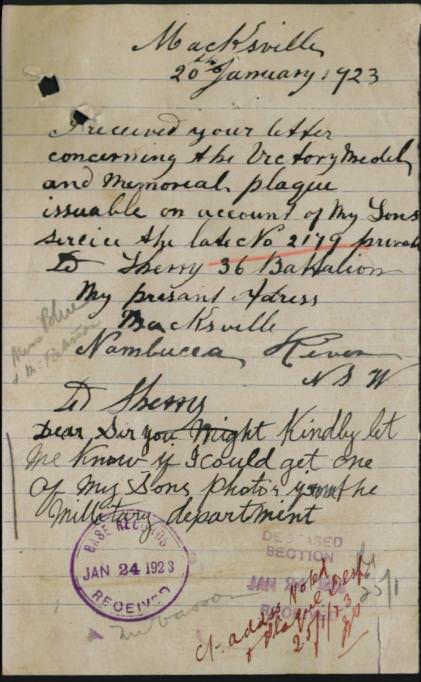 Macksville
20th January 1923
I received your letter
concerning the Victory Medel
and Memorial plaque
issuable on account of My Sons
sercice the late No 2179 privat
D Sherry 36 Battalion
My presant Adress
Macksville
Nambucca River
N S W
D Sherry
Dear Sir you Might Kindly let
Me Know if I could get one
of My Sons photos
the
Millitary department
BASE RECORDS
JAN 24 1923
RECEIVED
DECEASED
SECTION
JAN
RECEIVED
25/1
addss Noted
& Plaque
25/1/23